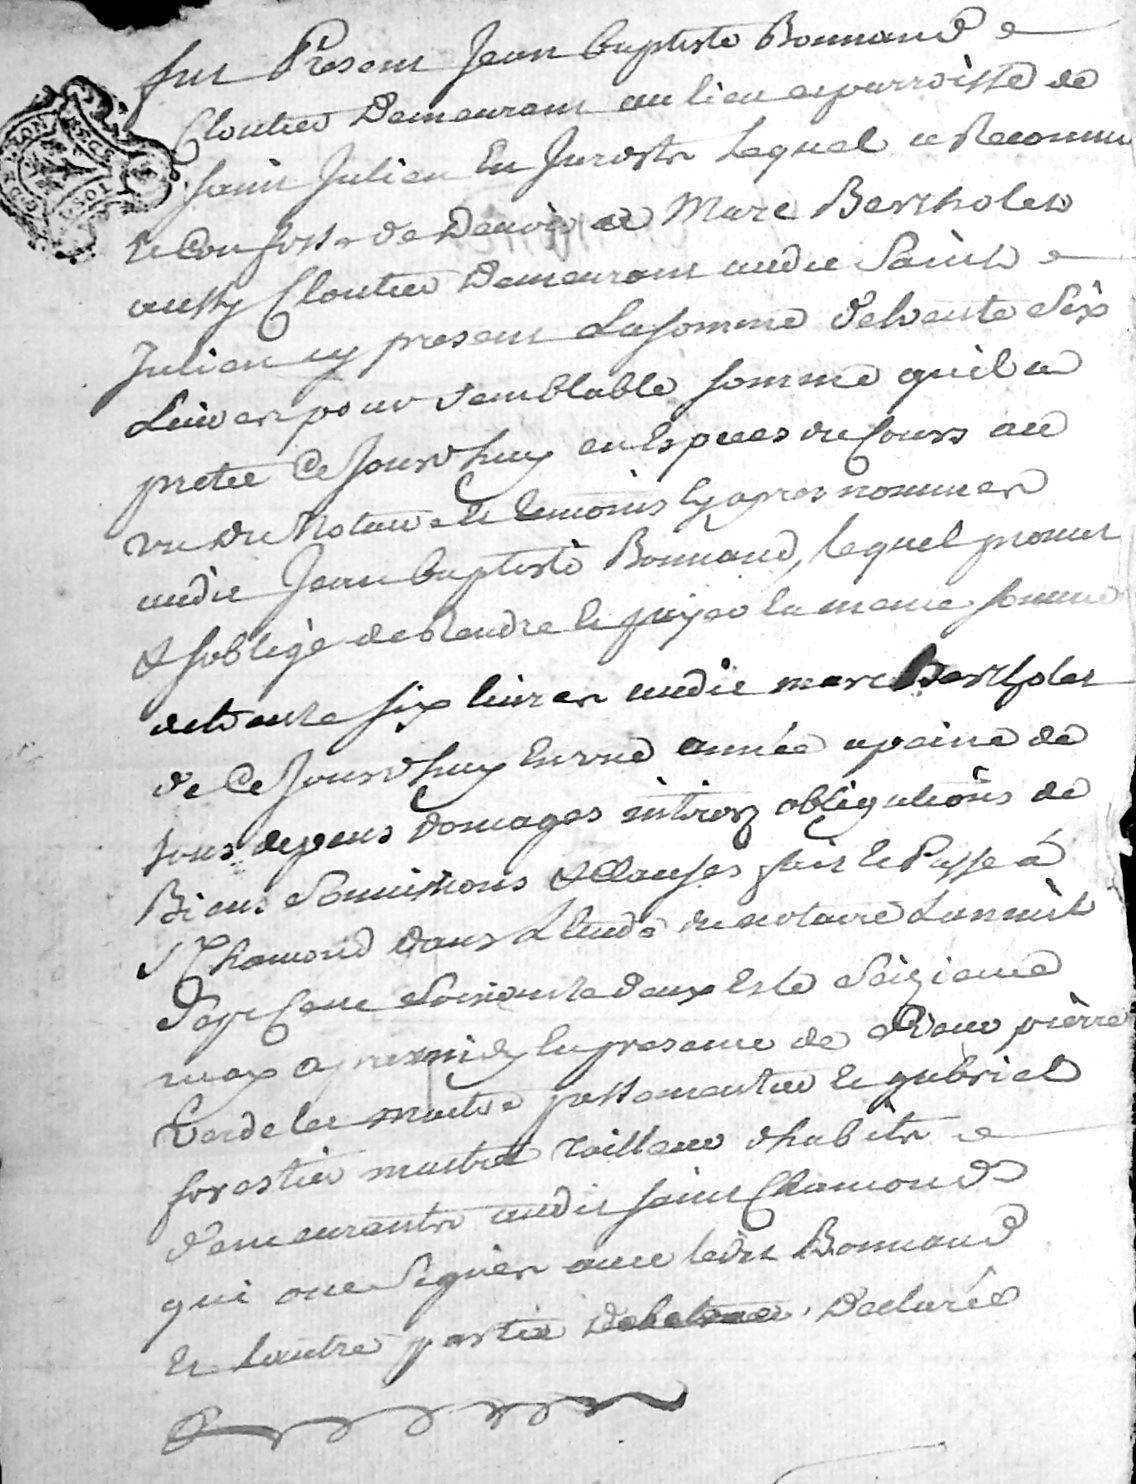 fut Present Jean baptiste Bonnand
Cloutier Demeurant au lieu et parroisse de
saint Julien En Jarests Lequel a Reconnu
et Confessé de Devoir a Marc Bertholet
aussy Cloutier Demeurant audit Saint
Julien cy present La somme de trente Six
Livres pour semblable somme quil a
pretée Ce Jourdhuy en Especes du Cours au
vu du Notaire et temoins Cy apres nommes
audit Jean baptiste Bonnand, lequel promet
& soblige de Rendre et payer la meme somme
de trente six livres audit marc Bertholet
de Ce Jourdhuy En une année a peine de
tous depens domages intrez obligations de
Biens Soumissions & Clauses fait et Passé à
St Chamond dans L'Etude du notaire L'an mil
Sept Cent Soixante deux Et le Seizieme
may apres midy En presence de pierre
maitre passementier et gabriel
forestier maitre tailleur dhabits
demeurants audit saint Chamond
qui ont Signés avec ledit Bonnand
et Lautre partie Declarée